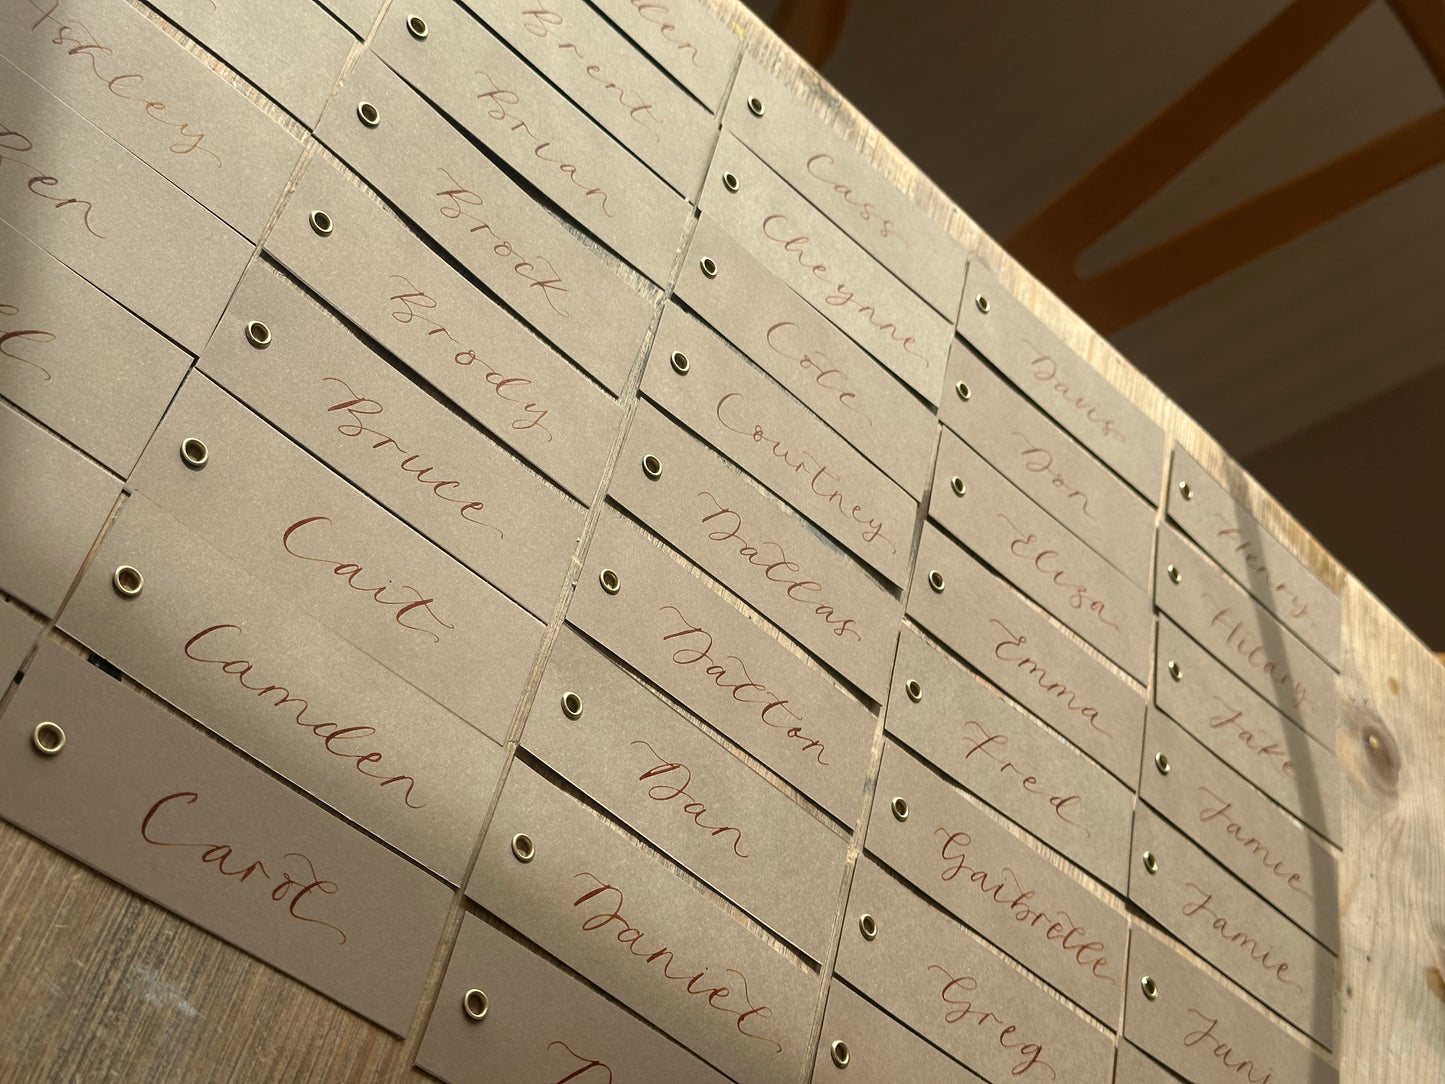 Ashley
Brent
Brian
Brock
Brody
Bruce
Cait
Camden
Carol
Cass
Cheynne
Cole
Courtney
Dallas
Dalton
Dan
Daniel
Davis
Don
Eliza
Emma
Fred
Gaibrelle
Greg
Henry
Hilary
Jake
Jamie
Jamie